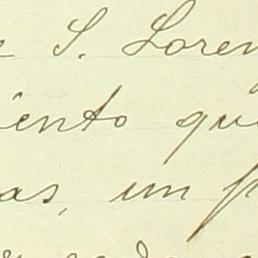 e S. Loren
iento qu
as, un p